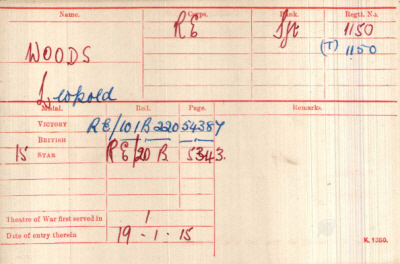 Name. Corps. Rank. Regtl. No.
WOODS RE Sjt 1150
(T) 1150
Leopold
Medal. Roll. Page. Remarks.
VICTORY RE/101B220 54387
BRITISH
15 STAR RE/20 B. 5343.
Theatre of War first served in 1
Date of entry therein 19-1-15
K. 1380.